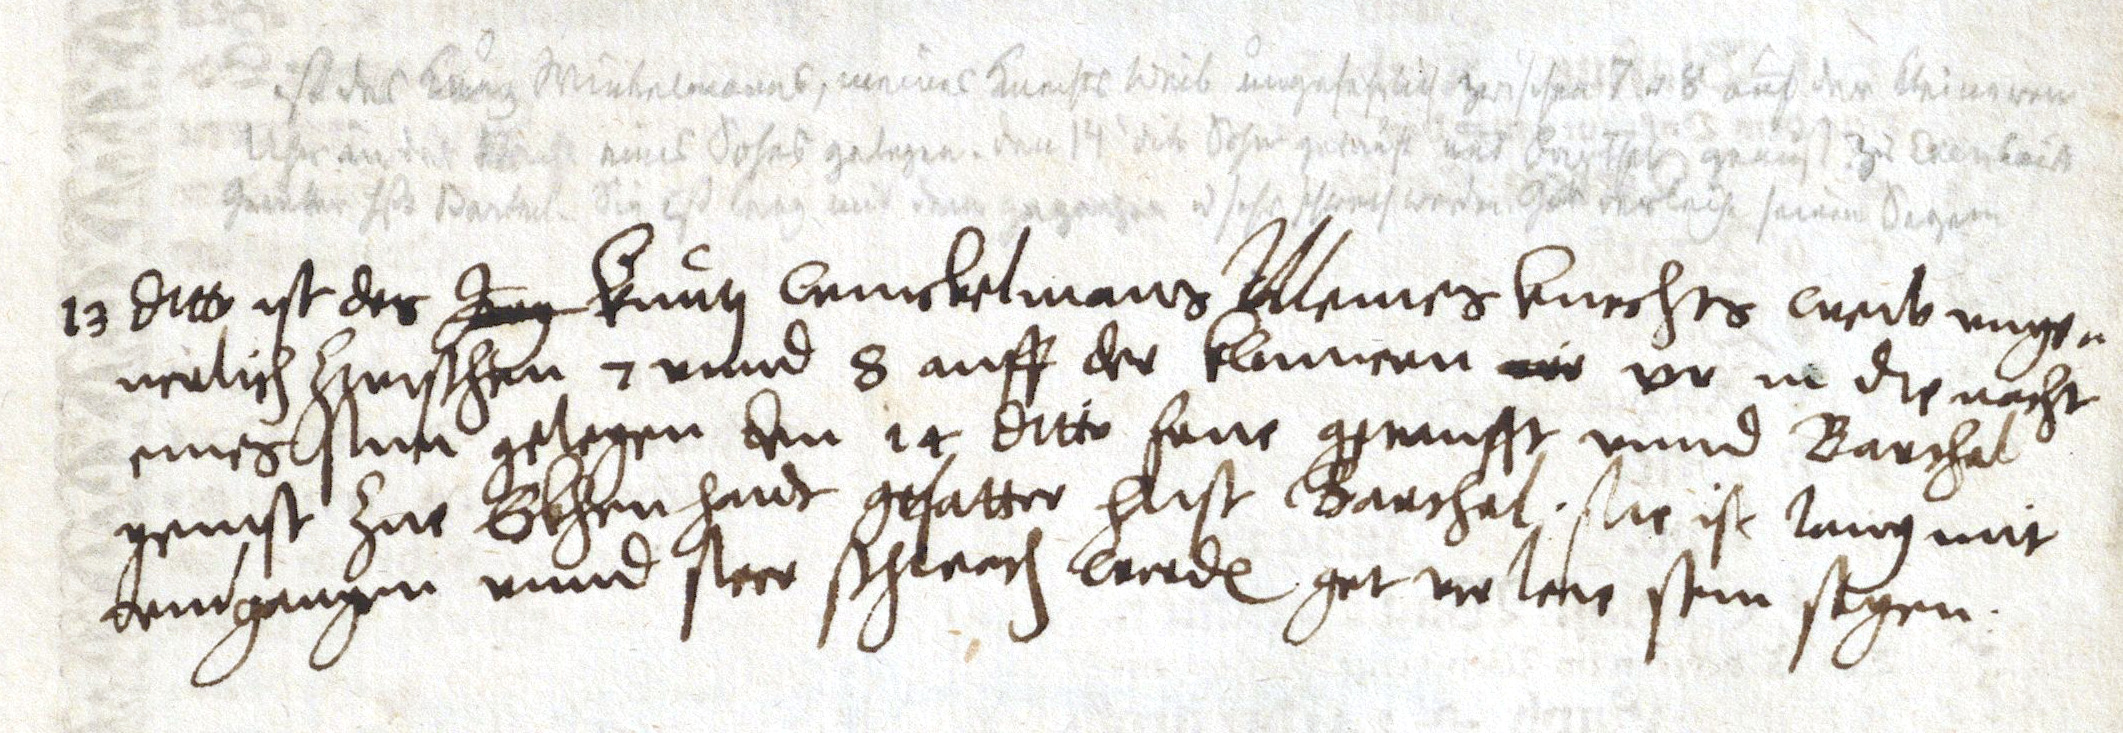 ist des Kunz Winkelmanns, meines Knechts Weib ungefehrlich zwischen 7 u 8 auf der kleineren
Uhr in der Nacht eines Sohns gelegen. den 14 dito Sohn getauft und Barthel genant zu
Gevatter hist Bartel. Sie ist lang mit dem gegangen u sehr schwach worden Gott verleihe seinen Segen
13 ditto ist des Kuntz Winckelmans Meines knechts weib unge
nerlich Zwischen 7 vnnd 8 auff der kleinnern vr in die nacht
eines sun gelegen den 14 ditto sone getaufft vnnd Barthel
genist Zue gefatter hist Barthel. sie ist lang mit
dem gangen vnnd seer schwach worden. got verleie sein segen.